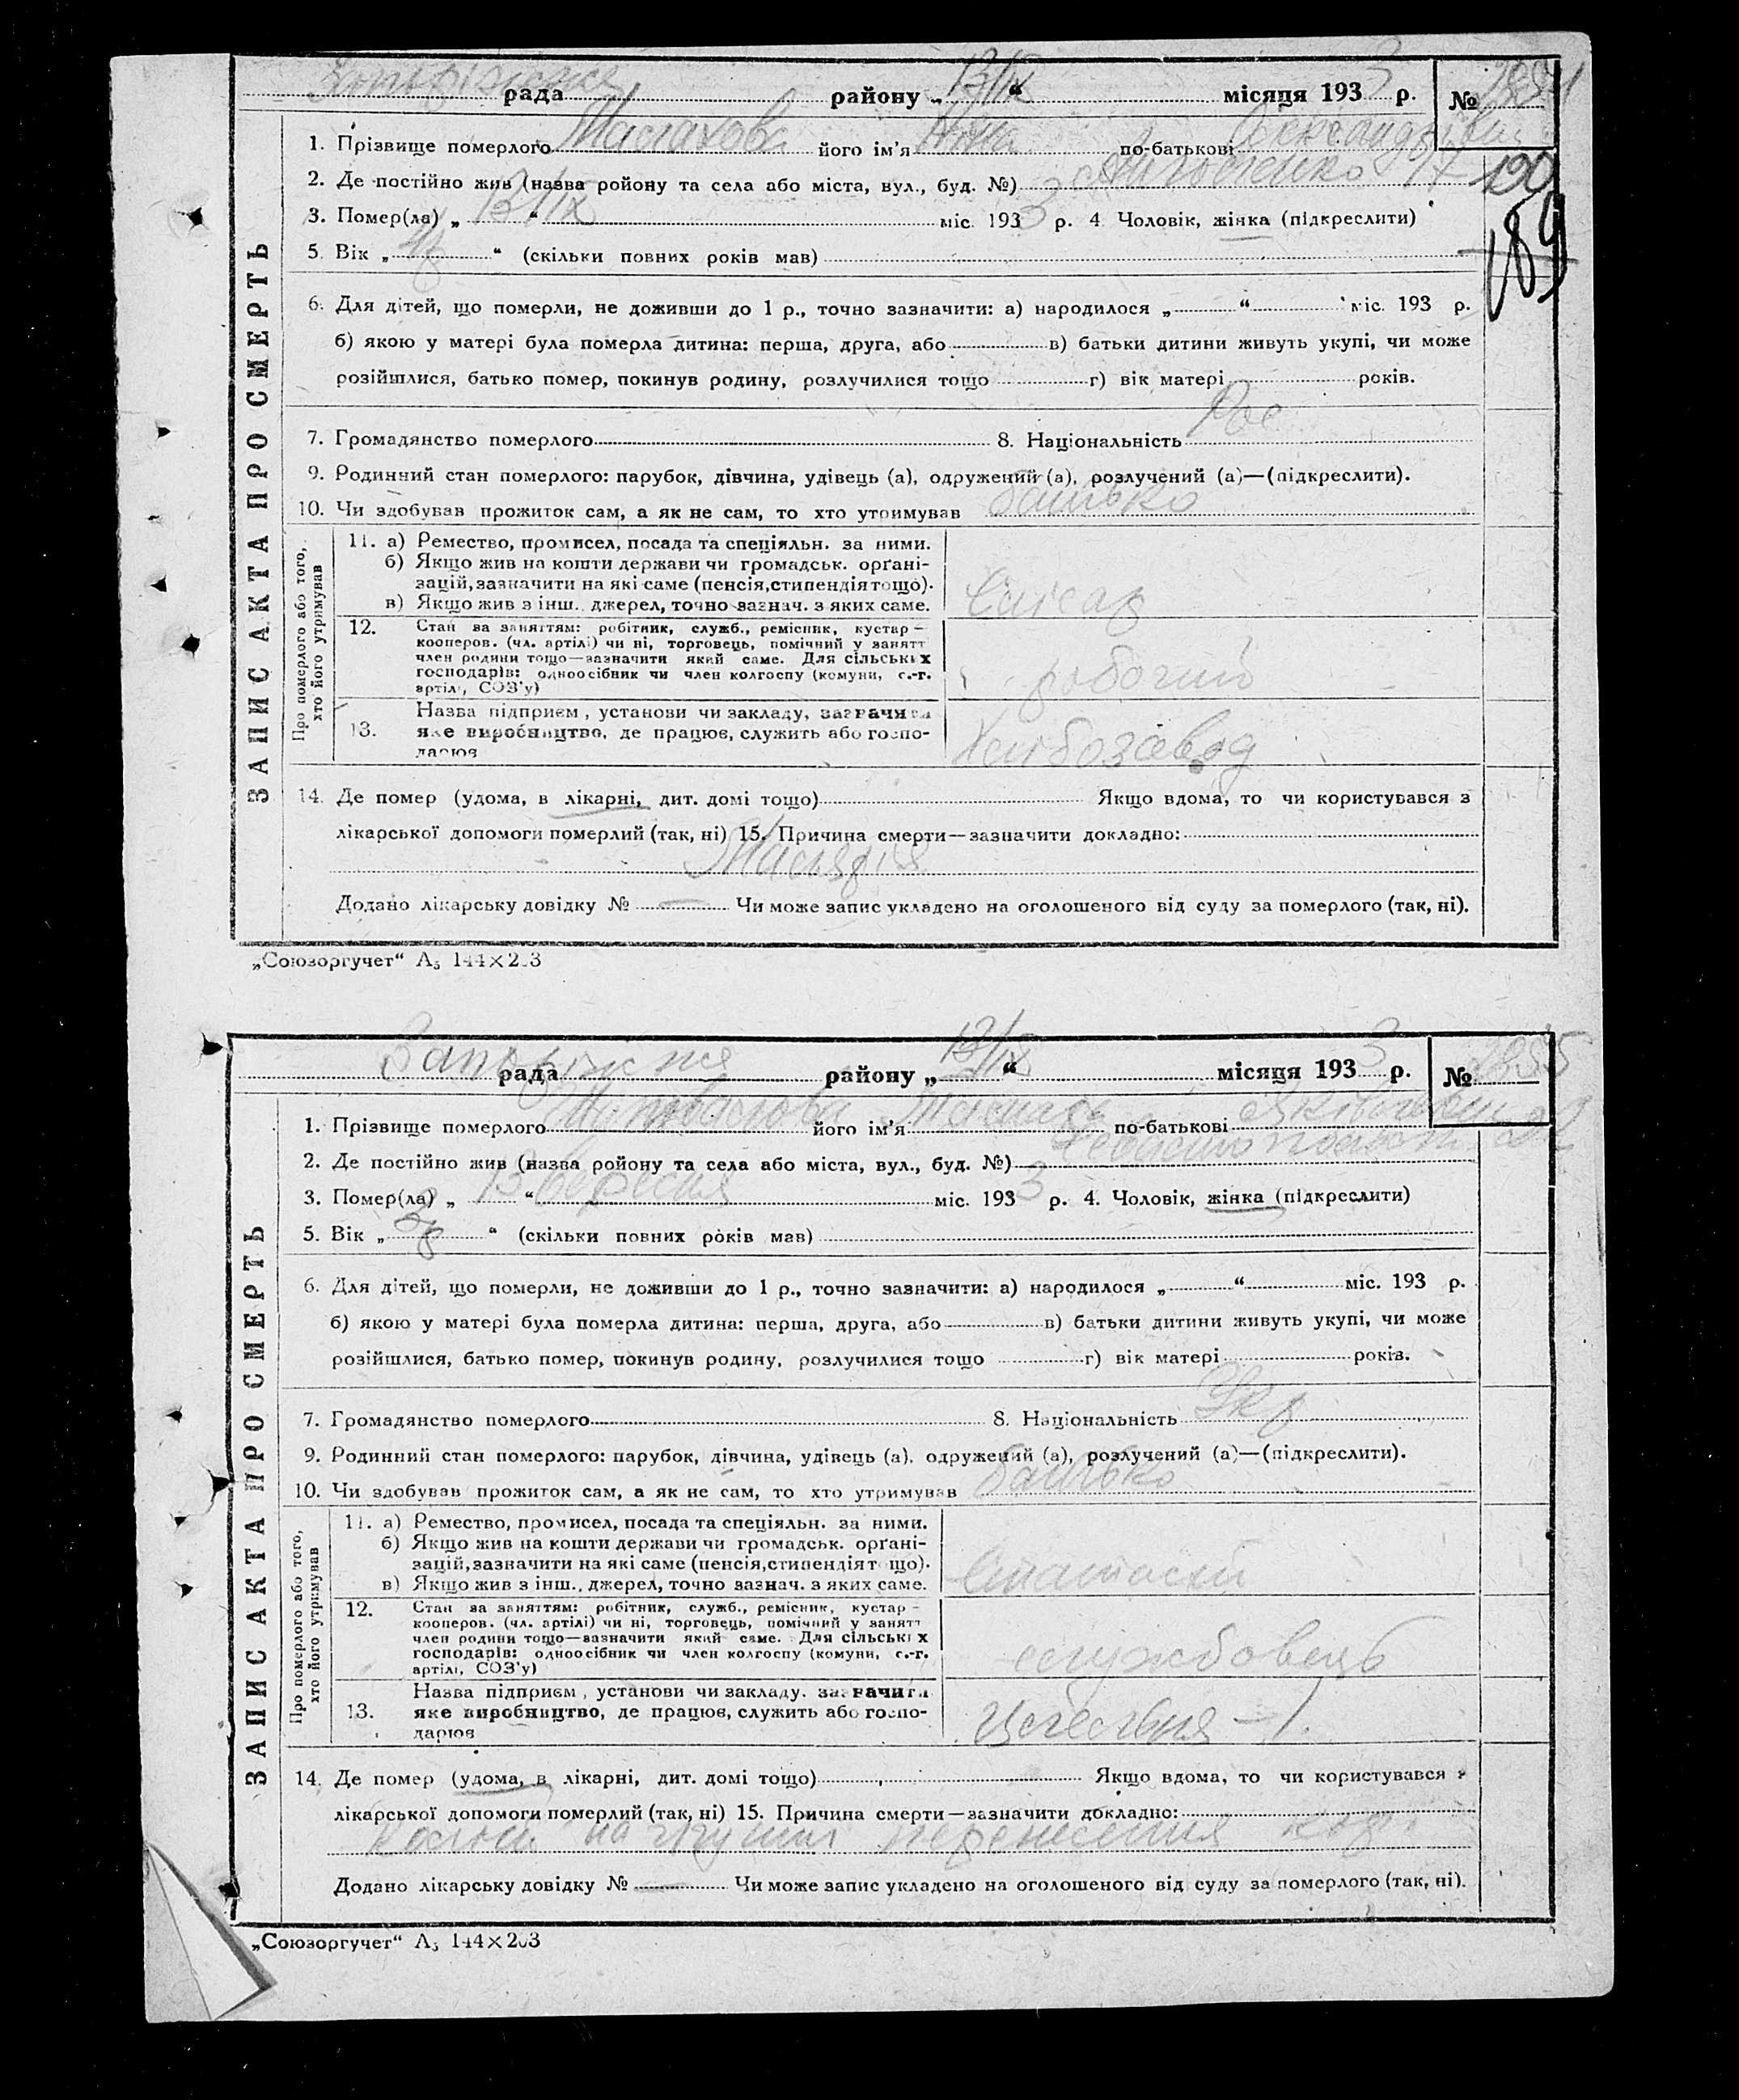 Запоріжжя рада району „13/IX“ місяця 1933 р. № 2854
1. Прізвище померлого Малахова його ім’я Ніна по-батькові Олександрівна
2. Де постійно жив (назва ройону та села або міста, вул., буд. №) 17 190
3. Помер(ла) „13/IX“ міс. 1933 р. 4 Чоловік, жінка (підкреслити)
189
5. Вік „ “ (скільки повних років мав)
6. Для дітей, що померли, не доживши до 1 р., точно зазначити: а) народилося „ “ міс. 193 р.
б) якою у матері була померла дитина: перша, друга, або в) батьки дитини живуть укупі, чи може
розійшлися, батько помер, покинув родину, розлучилися тощо г) вік матері років.
7. Громадянство померлого 8. Національність Рос
9. Родинний стан померлого: парубок, дівчина, удівець (а), одружений (а), розлучений (а)—(підкреслити).
10. Чи здобував прожиток сам, а як не сам, то хто утримував батько
ЗАПИС АКТА ПРО СМЕРТЬ
Про померлого або того, хто його утримував
11. а) Ремество, промисел, посада та спеціяльн. за ними.
б) Якщо жив на кошти держави чи громадськ. орґані-
зацій, зазначити на які саме (пенсія, стипендія тощо).
в) Якщо жив з інш. джерел, точно зазнач. з яких саме.
Слюсар
12. Стан за заняттям: робітник, служб., ремісник, кустар—
кооперов. (чл. артілі) чи ні, торговець, помічний у занятт
член родини тощо—зазначити який саме. Для сільських
господарів: одноосібник чи член колгоспу (комуни, с.-г.
артілі, СОЗ’у)
робочий
13. Назва підприєм, установи чи закладу, зазначити
яке виробництво, де працює, служить або госпо-
дарює
Хлібозавод
14. Де помер (удома, в лікарні, дит. домі тощо) Якщо вдома, то чи користувався з
лікарської допомоги померлий (так, ні) 15. Причина смерти—зазначити докладно:
Малярія
Додано лікарську довідку № — Чи може запис укладено на оголошеного від суду за померлого (так, ні).
„Союзоргучет“ А₅ 144×203
Запоріжжя рада району „13/IX“ місяця 1933 р. № 2855
1. Прізвище померлого його ім’я по-батькові
2. Де постійно жив (назва ройону та села або міста, вул., буд. №) 22
3. Помер(ла) „13“ вересня міс. 1933 р. 4. Чоловік, жінка (підкреслити)
5. Вік „ “ (скільки повних років мав)
6. Для дітей, що померли, не доживши до 1 р., точно зазначити: а) народилося „ “ міс. 193 р.
б) якою у матері була померла дитина: перша, друга, або в) батьки дитини живуть укупі, чи може
розійшлися, батько помер, покинув родину, розлучилися тощо г) вік матері років.
7. Громадянство померлого 8. Національність Укр
9. Родинний стан померлого: парубок, дівчина, удівець (а), одружений (а), розлучений (а)—(підкреслити).
10. Чи здобував прожиток сам, а як не сам, то хто утримував батько
ЗАПИС АКТА ПРО СМЕРТЬ
Про померлого або того, хто його утримував
11. а) Ремество, промисел, посада та спеціяльн. за ними.
б) Якщо жив на кошти держави чи громадськ. орґані-
зацій, зазначити на які саме (пенсія, стипендія тощо).
в) Якщо жив з інш. джерел, точно зазнач. з яких саме.
12. Стан за заняттям: робітник, служб., ремісник, кустар—
кооперов. (чл. артілі) чи ні, торговець, помічний у занятт
член родини тощо—зазначити який саме. Для сільських
господарів: одноосібник чи член колгоспу (комуни, с.-г.
артілі, СОЗ’у)
службовець
13. Назва підприєм, установи чи закладу, зазначити
яке виробництво, де працює, служить або госпо-
дарює
Цегельня — 1.
14. Де помер (удома, в лікарні, дит. домі тощо) Якщо вдома, то чи користувався з
лікарської допомоги померлий (так, ні) 15. Причина смерти—зазначити докладно:
перенесення
Додано лікарську довідку № Чи може запис укладено на оголошеного від суду за померлого (так, ні).
„Союзоргучет“ А₅ 144×203